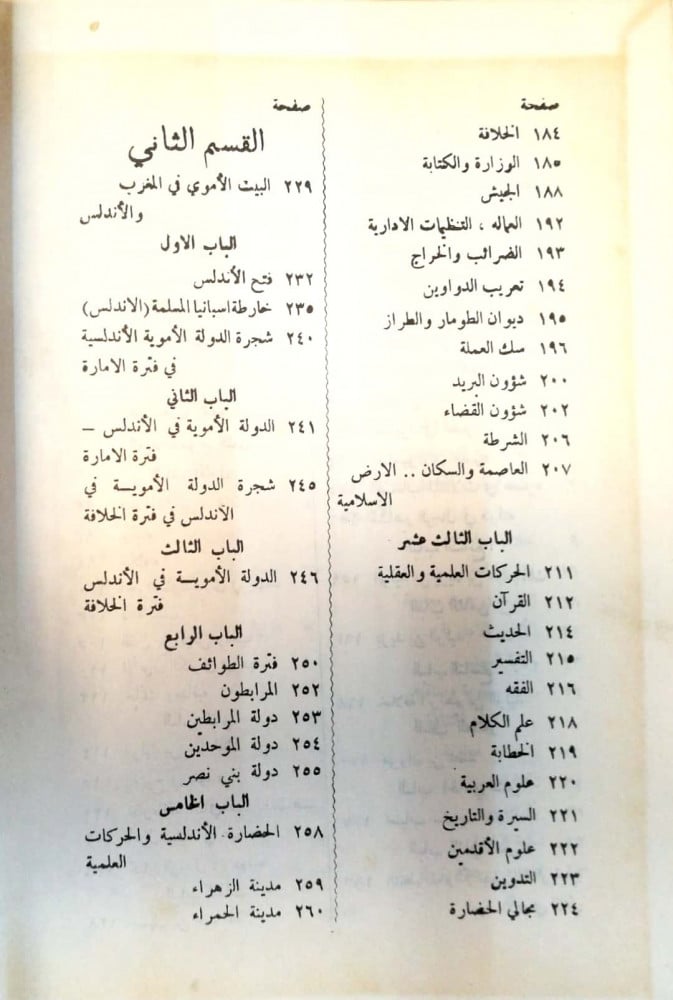 صفحة
١٨٤ الخلافة
١٨٥ الوزارة والكتابة
١٨٨ الجيش
١٩٢ العماله ، التنظيمات الادارية
١٩٣ الضرائب والخراج
١٩٤ تعريب الدواوين
١٩٥ ديوان الطومار والطراز
١٩٦ سك العملة
٢٠٠ شؤون البريد
٢٠٢ شؤون القضاء
٢٠٦ الشرطة
٢٠٧ العاصمة والسكان .. الارض
الاسلامية
الباب الثالث عشر
٢١١ الحركات العلمية والعقلية
٢١٢ القرآن
٢١٤ الحديث
٢١٥ التفسير
٢١٦ الفقه
٢١٨ علم الكلام
٢١٩ الخطابة
٢٢٠ علوم العربية
٢٢١ السيرة والتاريخ
٢٢٢ علوم الأقدمين
٢٢٣ التدوين
٢٢٤ مجالي الحضارة
صفحة
القسم الثاني
٢٢٩ البيت الأموي في المغرب
والأندلس
الباب الاول
٢٣٢ فتح الأندلس
٢٣٥ خارطة اسبانيا المسلمة (الاندلس)
٢٤٠ شجرة الدولة الأموية الأندلسية
في فترة الامارة
الباب الثاني
٢٤١ الدولة الأموية في الأندلس –
فترة الامارة
٢٤٥ شجرة الدولة الأمويـــة في
الأندلس في فترة الخلافة
الباب الثالث
٢٤٦ الدولة الأمويـــة في الأندلس
فترة الخلافة
الباب الرابع
٢٥٠ فترة الطوائف
٢٥٢ المرابطون
٢٥٣ دولة المرابطين
٢٥٤ دولة الموحدين
٢٥٥ دولة بني نصر
الباب الخامس
٢٥٨ الحضارة الأندلسية والحركات
العلمية
٢٥٩ مدينة الزهراء
٢٦٠ مدينة الحمراء